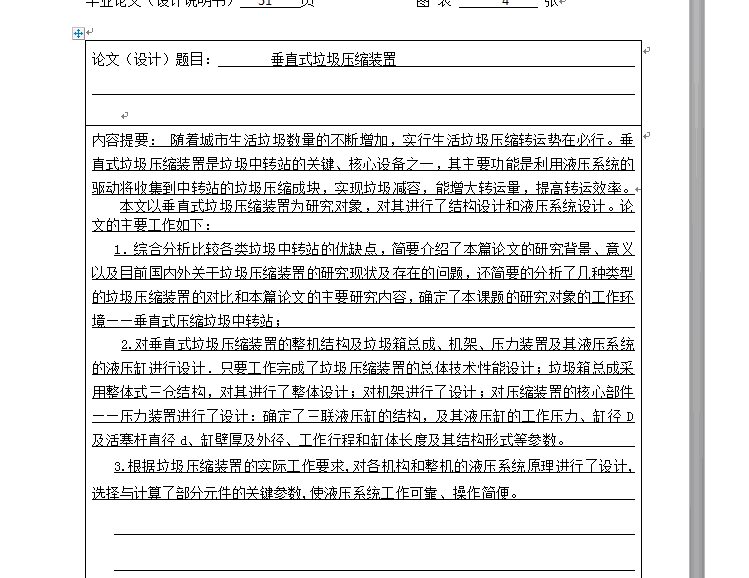 毕业论文（设计说明书） 51 页 图 表 4 张
论文（设计）题目： 垂直式垃圾压缩装置
内容提要： 随着城市生活垃圾数量的不断增加，实行生活垃圾压缩转运势在必行。垂
直式垃圾压缩装置是垃圾中转站的关键、核心设备之一，其主要功能是利用液压系统的
驱动将收集到中转站的垃圾压缩成块，实现垃圾减容，能增大转运量，提高转运效率。
本文以垂直式垃圾压缩装置为研究对象，对其进行了结构设计和液压系统设计。论
文的主要工作如下：
1. 综合分析比较各类垃圾中转站的优缺点，简要介绍了本篇论文的研究背景、意义
以及目前国内外关于垃圾压缩装置的研究现状及存在的问题，还简要的分析了几种类型
的垃圾压缩装置的对比和本篇论文的主要研究内容，确定了本课题的研究对象的工作环
境——垂直式压缩垃圾中转站；
2.对垂直式垃圾压缩装置的整机结构及垃圾箱总成、机架、压力装置及其液压系统
的液压缸进行设计．只要工作完成了垃圾压缩装置的总体技术性能设计；垃圾箱总成采
用整体式三仓结构，对其进行了整体设计；对机架进行了设计；对压缩装置的核心部件
——压力装置进行了设计：确定了三联液压缸的结构，及其液压缸的工作压力、缸径 D
及活塞杆直径 d、缸壁厚及外径、工作行程和缸体长度及其结构形式等参数。
3.根据垃圾压缩装置的实际工作要求,对各机构和整机的液压系统原理进行了设计,
选择与计算了部分元件的关键参数,使液压系统工作可靠、操作简便。